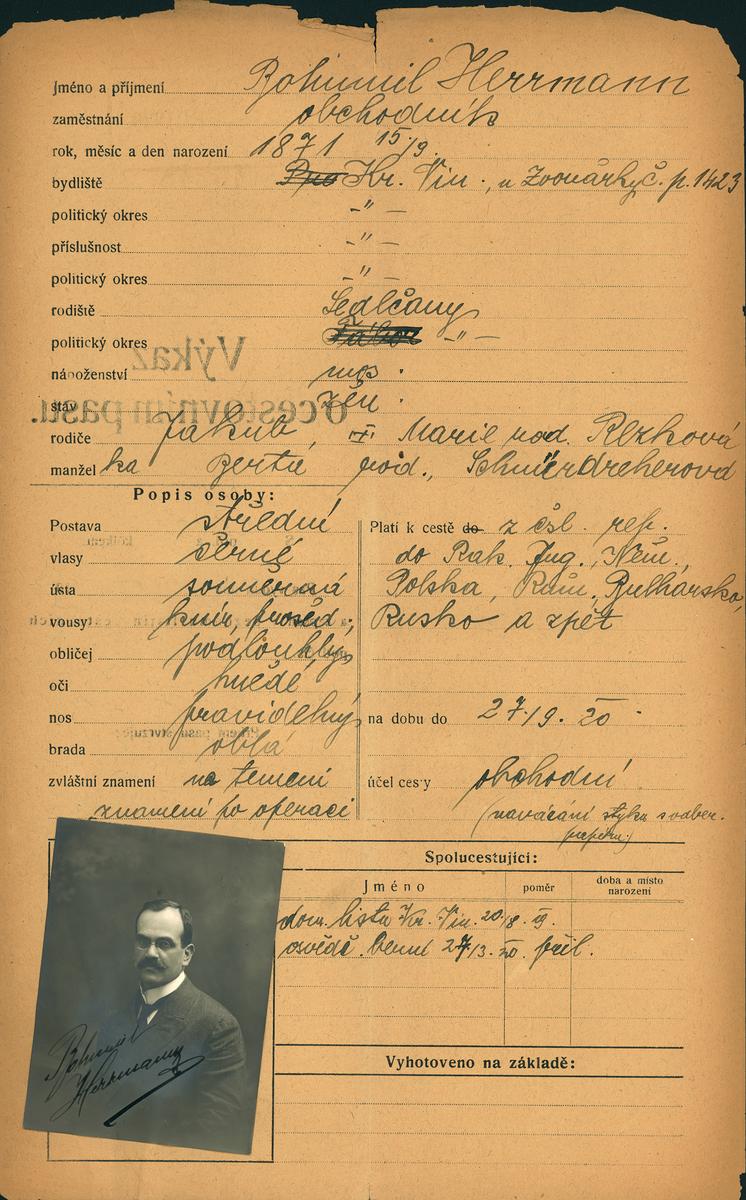 Jméno a příjmení Bohumil Herrmann
zaměstnání obchodník
rok, měsíc a den narození 1871 15/9.
bydliště Kr. Vin., u Zvonařky č. p. 1423
politický okres -"-
příslušnost -"-
politický okres -"-
rodiště Sedlčany
politický okres Tábor -"-
náboženství mos.
stav žen.
rodiče Jakub, Marie rod. Rezková
manžel ka Berta rod., Schnierdreherová
Popis osoby:
Postava střední
vlasy černé
ústa souměrná
vousy knír, prošed.,
obličej podlouhlý
oči hnědé
nos pravidelný
brada oblá
zvláštní znamení na temeni
znamení po operaci
Platí k cestě do z čsl. rep.
do Rak. Jug., Něm.,
Polska, Rum., Bulharsko,
Rusko a zpět
na dobu do 27./9. 20.
účel cesty obchodní
(navázání styků s odběr.
Výkaz
o cestovním pasu.
Spolucestující:
Jméno poměr doba a místo narození
dom. listu Kr. Vin. 20/8. 19.
osvěd. 27/3. 20. příl.
Vyhotoveno na základě:
Bohumil
Herrmann